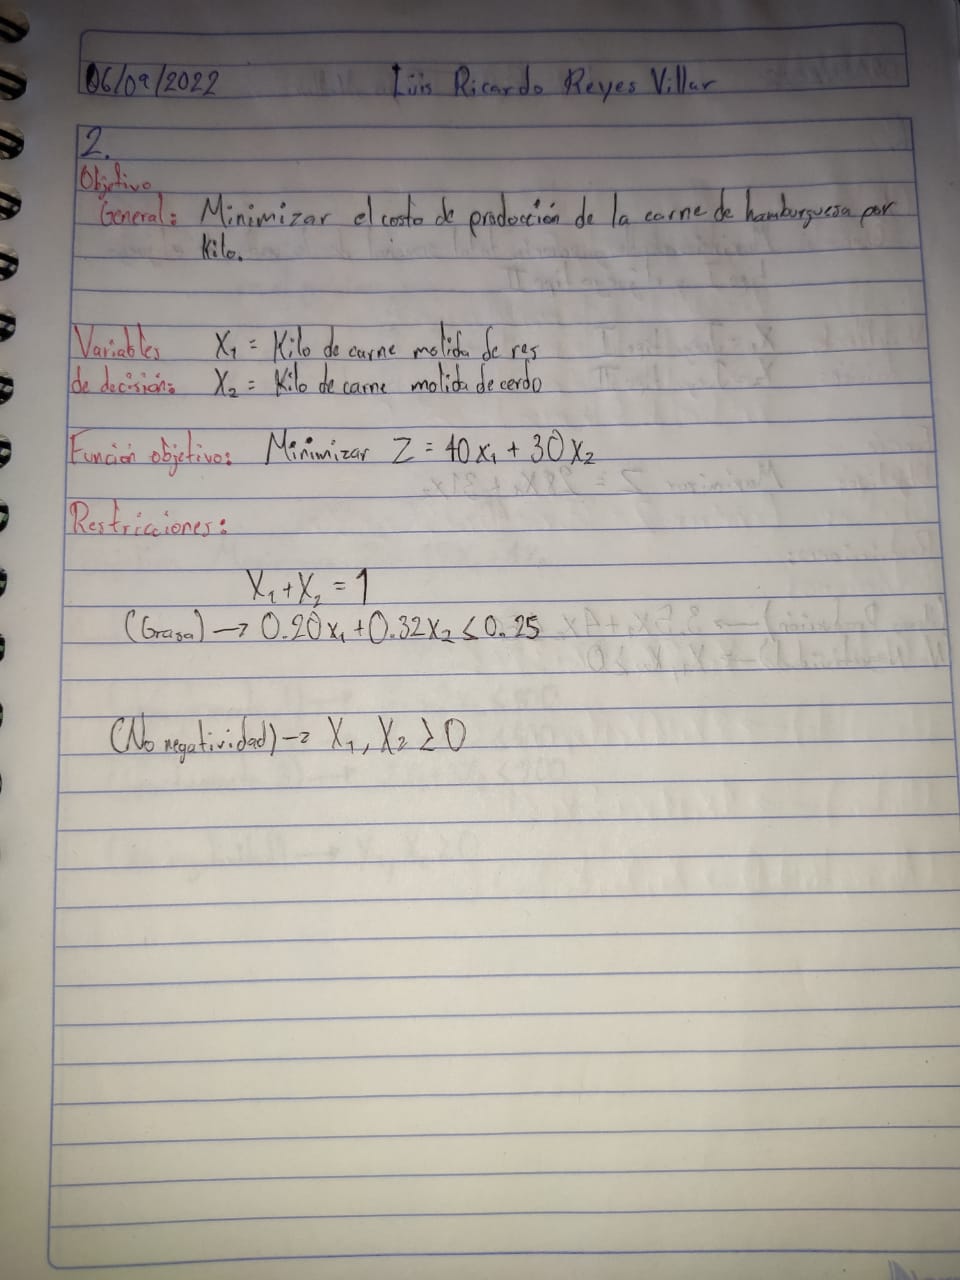 06/09/2022 Luis Ricardo Reyes Villar
2.
Objetivo
General: Minimizar el costo de producción de la carne de hamburguesa por
Kilo.
Variables X₁ = Kilo de carne molida de res
de decisión: X₂ = Kilo de carne molida de cerdo
Función objetivo: Minimizar Z = 40x₁ + 30X₂
Restricciones:
X₁ + X₂ = 1
(Grasa) → 0.20x₁ + 0.32X₂ ≤ 0.25
(No negatividad) → X₁, X₂ ≥ 0